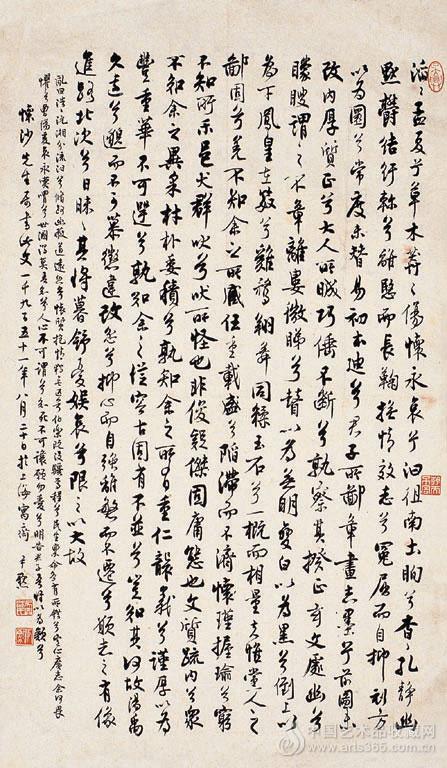 滔〻孟夏兮草木莽〻傷懷永哀兮汩徂南土眴兮杳〻孔靜幽
默鬱結紆軫兮離慜而長鞠撫情效志兮冤屈而自抑刓方
以為圜兮常度未替易初本迪兮君子所鄙章畫志墨兮前圖未
改內厚質正兮大人所晠巧倕不斲兮孰察其揆正玄文處幽兮
矇瞍謂之不章離婁微睇兮瞽以為無明變白以為黑兮倒上以
為下鳳皇在笯兮雞鶩翔舞同糅玉石兮一概而相量夫惟黨人之
鄙固兮羌不知余之所臧任重載盛兮陷滯而不濟懷瑾握瑜兮窮
不知所示邑犬群吠兮吠所怪也非俊疑傑固庸態也文質疏內兮眾
不知余之異采材朴委積兮孰知余之所有重仁襲義兮謹厚以為
豐重華不可遌兮孰知余之從容古固有不並兮豈知其何故湯禹
久遠兮邈而不可慕懲違改忿兮抑心而自強離慜而不遷兮願志之有像
進路北次兮日昧〻其將暮舒憂娛哀兮限之以大故
亂曰浩〻沅湘分流汩兮脩路幽蔽道遠忽兮懷質抱情獨無匹兮伯樂既沒驥焉程兮民生稟命各有所錯兮定心廣志余何畏
懼兮曾傷爰哀永嘆喟兮世溷濁莫吾知兮人心不可謂兮知死不可讓願勿愛兮明告君子吾將以為類兮
懷沙先生屬書此文一千九百五十一年八月二十日於上海寓齋尹默
中国艺术品收藏网
www.arts365.com.cn